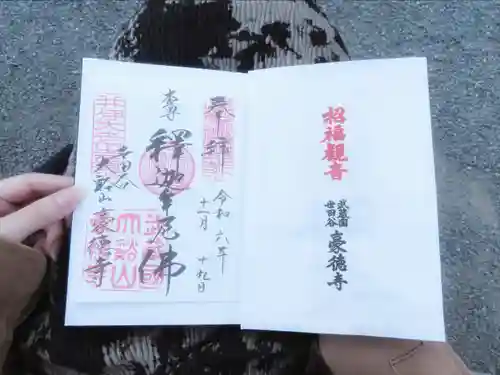 奉拝
令和六年
十一月
十九日
本尊
釋迦牟尼佛
世田谷
大谿山
豪徳寺
招福観音
武蔵國
世田谷
豪徳寺